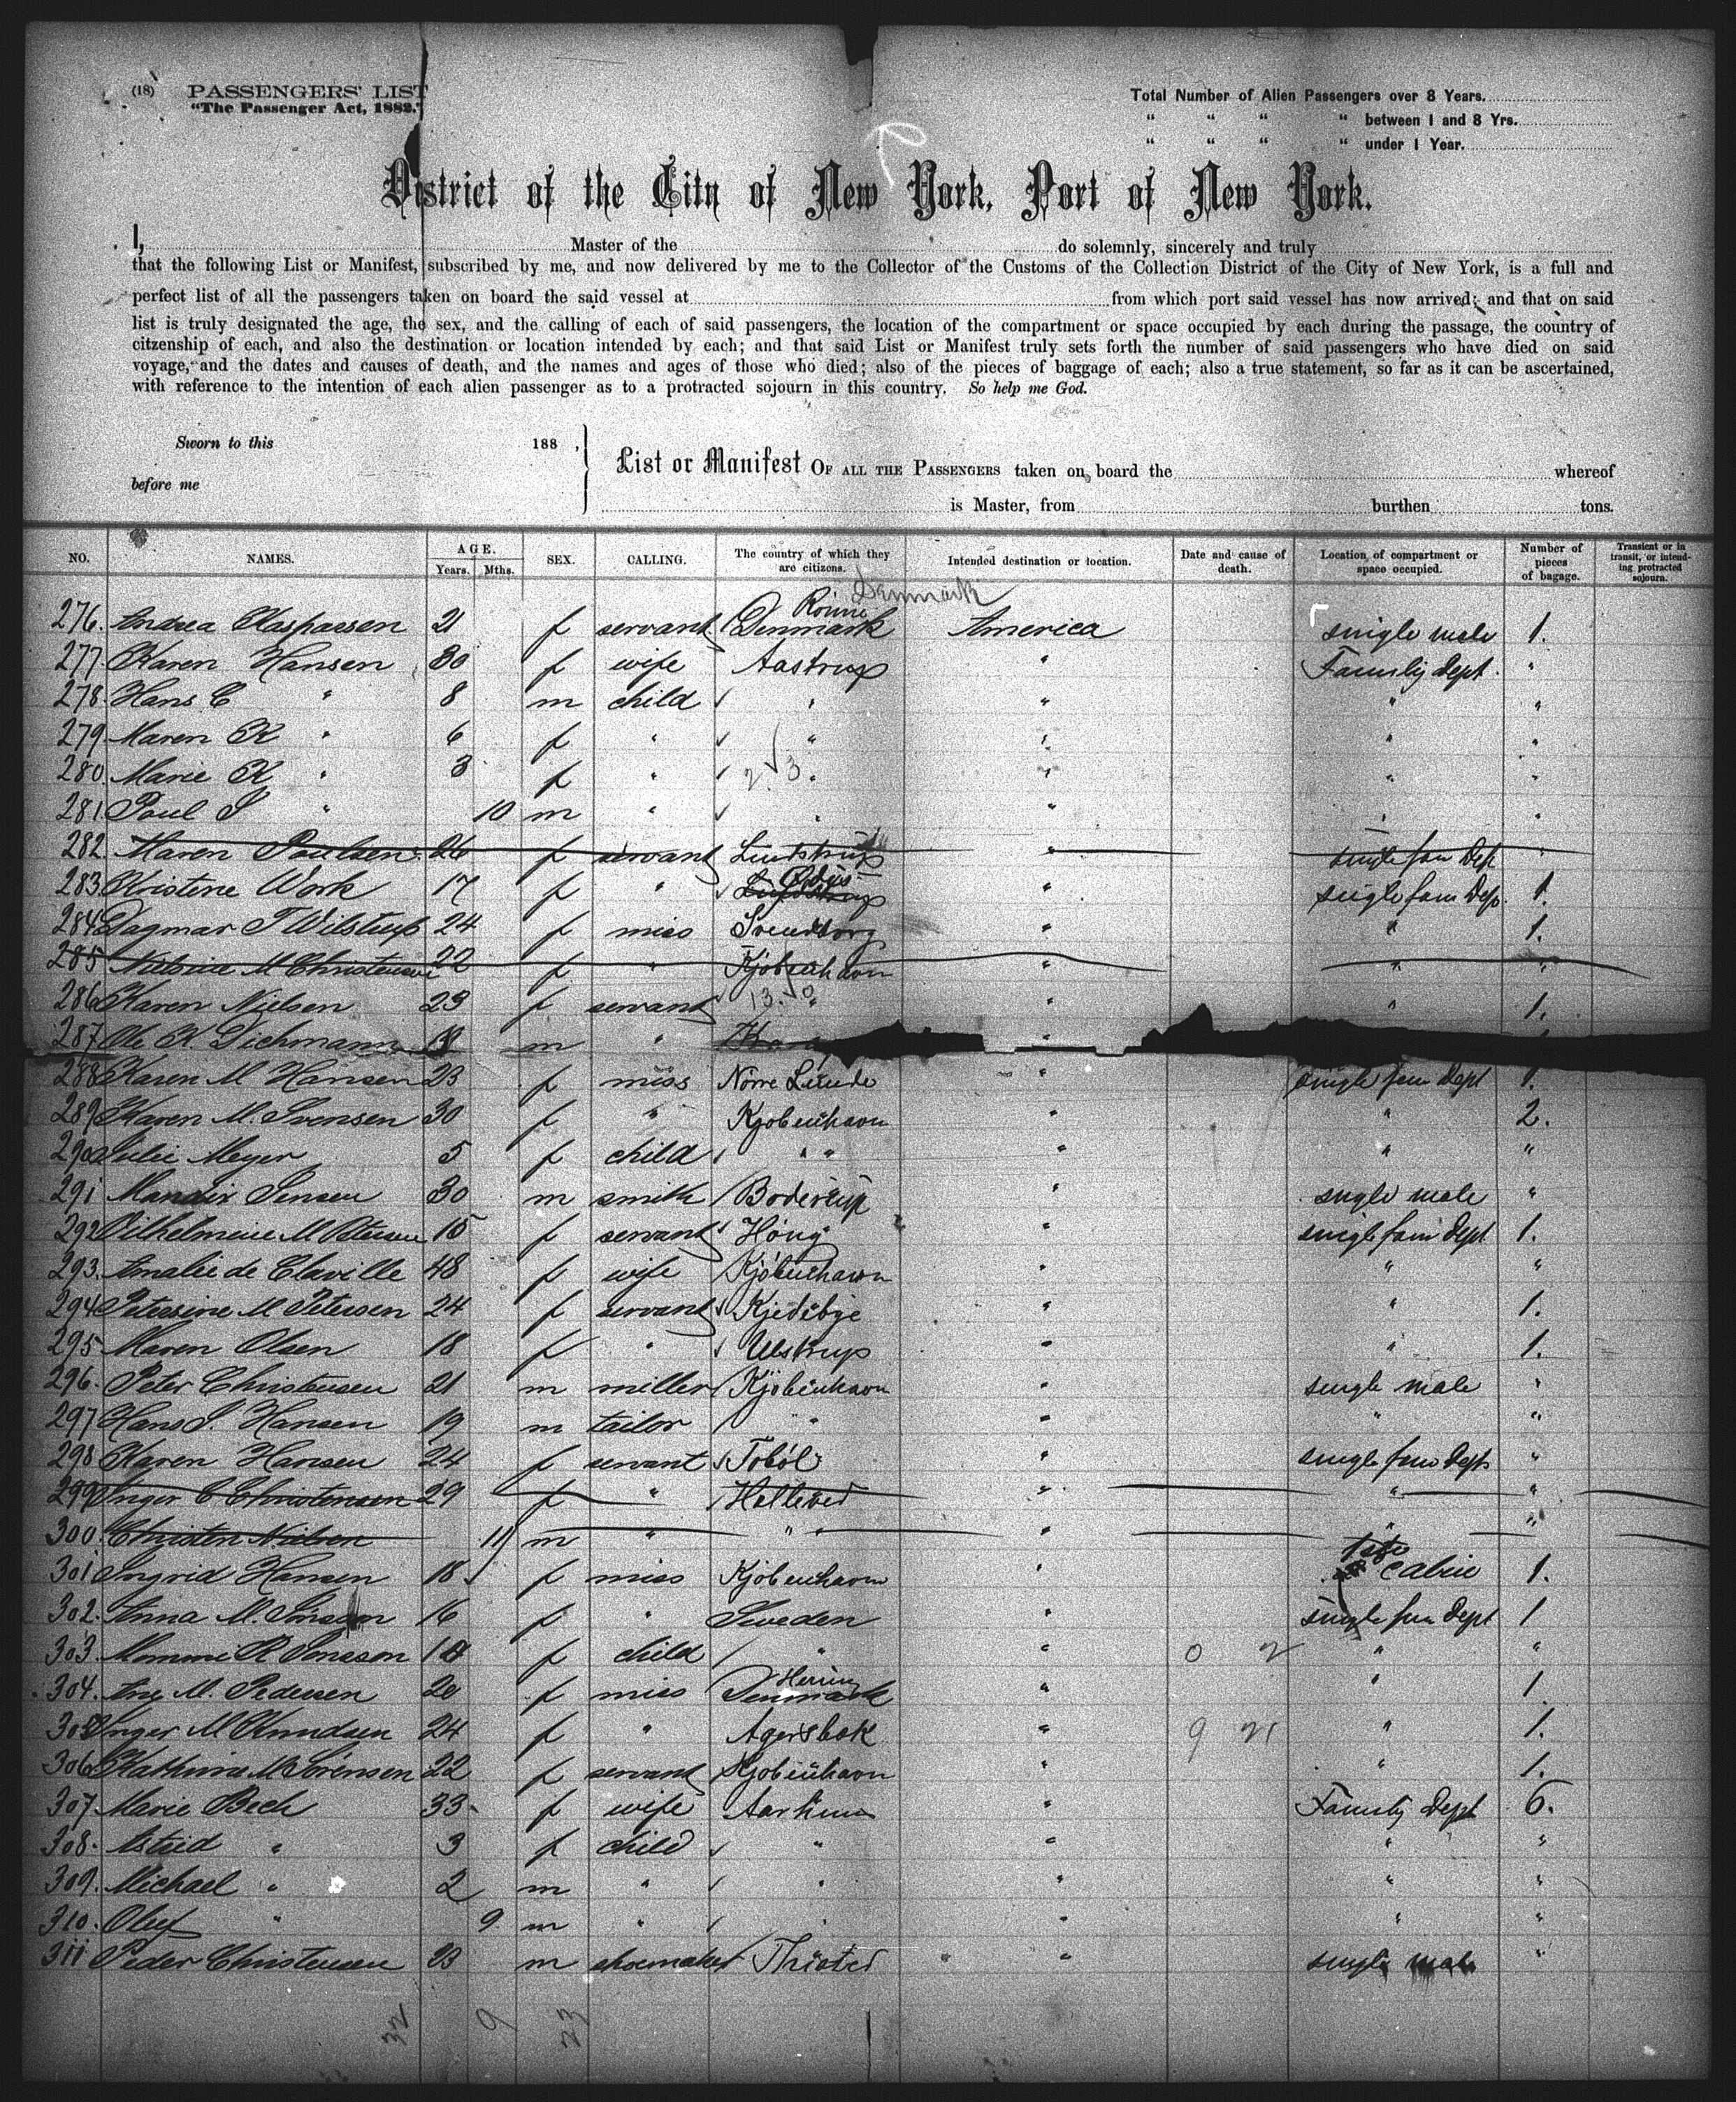 (18) PASSENGERS' LIST
"The Passenger Act, 1882."
Total Number of Alien Passengers over 8 Years.
" " " " between 1 and 8 Yrs.
" " " " under 1 Year.
District of the City of New York, Port of New York.
I, Master of the do solemnly, sincerely and truly
that the following List or Manifest, subscribed by me, and now delivered by me to the Collector of the Customs of the Collection District of the City of New York, is a full and
perfect list of all the passengers taken on board the said vessel at from which port said vessel has now arrived; and that on said
list is truly designated the age, the sex, and the calling of each of said passengers, the location of the compartment or space occupied by each during the passage, the country of
citzenship of each, and also the destination or location intended by each; and that said List or Manifest truly sets forth the number of said passengers who have died on said
voyage, and the dates and causes of death, and the names and ages of those who died; also of the pieces of baggage of each; also a true statement, so far as it can be ascertained,
with reference to the intention of each alien passenger as to a protracted sojourn in this country. So help me God.
Sworn to this 188 ,
before me
List or Manifest OF ALL THE PASSENGERS taken on board the whereof
is Master, from burthen tons.
NO. NAMES. AGE. Years. Mths. SEX. CALLING. The country of which they are citizens. Intended destination or location. Date and cause of death. Location of compartment or space occupied. Number of pieces of bagage. Transient or in transit, or intending protracted sojourn.
Denmark
276. Andrea Kaspassen 21 f servant Rönne Denmark America single male 1.
277. Karen Hansen 30 f wife Aastrup " Family Dept. "
278. Hans C " 8 m child " " " "
279. Maren K " 6 f " " " " "
280. Marie K " 3 f " " " " "
281. Poul S " 10 m " " " " "
282. Maren Poulsen 26 f servant Lindstrup " single fem Dep "
283. Kristene Work 17 f " " single fem Dep. 1.
284. Dagmar T Wilstrup 24 f miss Svendborg " " 1.
285 Nielsine M Christensen 22 f " Kjobenhavn " " "
286. Karen Nielsen 23 f servant " " " 1.
287. Ole K. Dichmann m " "
288. Karen M Hansen 23 f miss Nörre Lunde " single fem Dept 1.
289. Karen M. Svensen 30 f " Kjobenhavn " " 2.
290. Julie Meyer 5 f child " " " " "
291 Jensen 30 m smith " single male "
292 Vilhelmine M Petersen f servant Höng " single fem Dept 1.
293. Amalie de Claville 48 f wife Kjöbenhavn " " "
294. Petersine M Petersen 24 f servant Kjedebye " " 1.
295. Maren Olsen 18 f " Ulstrup " " 1.
296. Peter Christensen 21 m miller Kjöbenhavn " single male "
297 Hans J. Hansen 19 m tailor " " " "
298 Karen Hansen 24 f servant Toböl " single fem Dept "
299 Inger C Christensen 29 f " " " "
300. Christen Nielsen 11 m " " " " " "
301 Ingrid Hansen 18 f miss Kjobenhavn " 1ste Cabin 1.
302. Anna M. 16 f " Sweden " single fem Dept 1
303. R Jonsson f child " " 0 2 " "
304. Ane M. Pedersen 20 f miss Herning Denmark " " 1.
305 Inger M Knudsen 24 f " Agersbæk " 9 21 " 1.
306 Kathrine M Sörensen 22 f servant Kjöbenhavn " " 1.
307. Marie Bech 33 f wife Aarhuus " Family Dept 6.
308. Astrid " 3 f child " " " "
309. Michael " 2 m " " " " "
310. Oluf " 9 m " " " " "
311 Peder Christensen m shoemaker Thisted " single male "
32 9 23